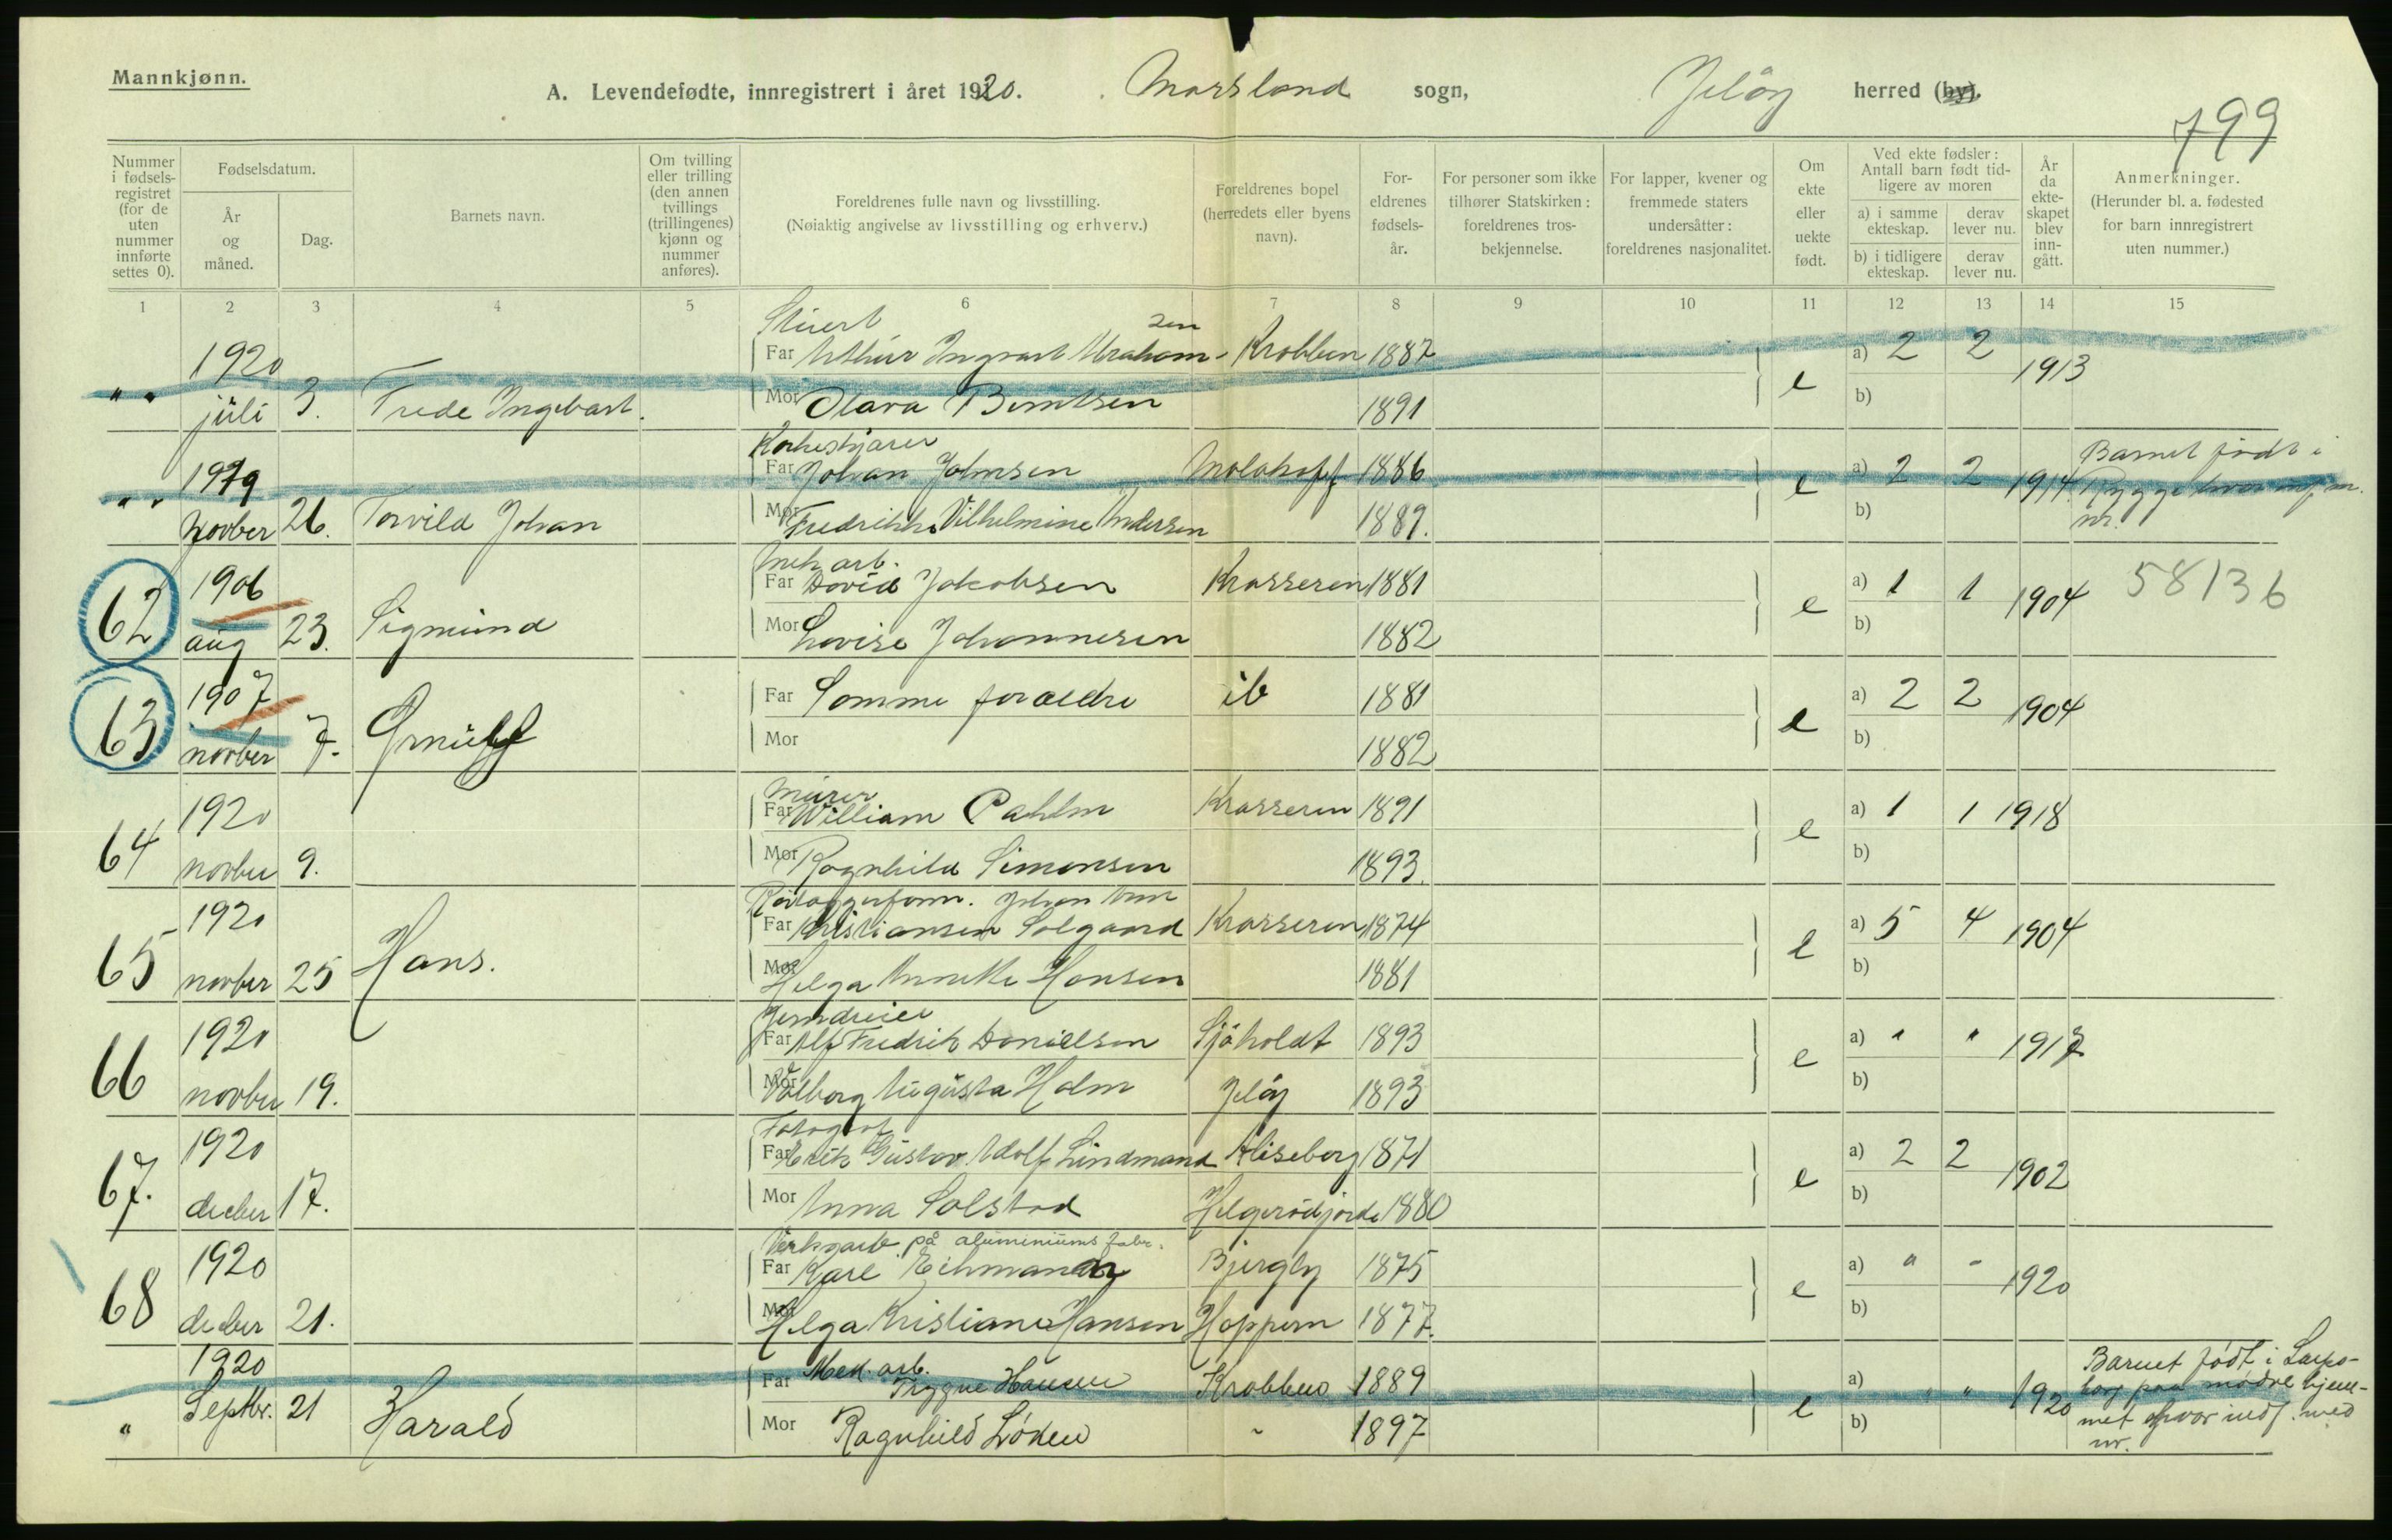 Mannkjønn.
A. Levendefødte, innregistrert i året 1920. Mossland sogn, Jeløy herred (by).
799
Nummer i fødselsregistret (for de uten nummer innførte settes 0).
Fødselsdatum.
År og måned.
Dag.
Barnets navn.
Om tvilling eller trilling (den annen tvillings (trillingenes) kjønn og nummer anføres).
Foreldrenes fulle navn og livsstilling.
(Nøiaktig angivelse av livsstilling og erhverv.)
Foreldrenes bopel (herredets eller byens navn).
Foreldrenes fødselsår.
For personer som ikke tilhører Statskirken: foreldrenes trosbekjennelse.
For lapper, kvener og fremmede staters undersåtter: foreldrenes nasjonalitet.
Om ekte eller uekte født.
Ved ekte fødsler: Antall barn født tidligere av moren
a) i samme ekteskap.
derav lever nu.
b) i tidligere ekteskap.
derav lever nu.
År da ekteskapet blev inngått.
Anmerkninger.
(Herunder bl. a. fødested for barn innregistrert uten nummer.)
1 2 3 4 5 6 7 8 9 10 11 12 13 14 15
Stuert
1920 Far Arthur Ingvart Abrahamsen Krobben 1887 a) 2 2
" " juli 3. Frede Ingebart. Mor Olava Berntsen 1891 e b) 1913
Korkeskjærer
1919 Far Johan Johnsen Molahoff 1886 e a) 2 2 1914 Barnet født i Rygge hvor
" " novber 26. Torvild Johan Mor Fredrikke Vilhelmine Andersen 1889. b) nr.
Mek arb.
62 1906 Far David Jakobsen Krosseren 1881 a) 1 1 1904 58136
aug 23. Sigmund Mor Lovise Johannesen 1882 e b)
63 1907 Far Samme foraeldre ib 1881 a) 2 2 1904
novber 7. Ørnulf Mor 1882 e b)
Murer
64 1920 Far William Pahlm Krosseren 1891 a) 1 1 1918
novber 9. Mor Ragnhild Simensen 1893. e b)
Johan
65 1920 Far Kristiansen Solgaard Krosseren 1874 a) 5 4 1904
novber 25 Hans. Mor Helga Annette Hansen 1881 e b)
Jerndreier
66 1920 Far Alf Fredrik Danielsen Sjøholdt 1893 a) " " 1917
novber 19. Mor Valborg Augusta Holm Jeløy 1893 e b)
Fotograf
67. 1920 Far Erik Gustav Adolf Lindmand Aliseborg 1871 a) 2 2 1902
decber 17. Mor Anna Solstad Helgerødjorde 1880 e b)
Verksarb. på aluminiums fabr.
68 1920 Far Karl Eihmann Bjergby 1875 a) " - 1920
decber 21. Mor Helga Kristiane Hansen Hoppern 1877. e b)
Mek. arb.
1920 Far Trygve Hansen Krobben 1889 a) " " 1920 Barnet født i
" Septbr. 21 Harald Mor Ragnhild Løken " 1897 e b) hvor indf. med nr.